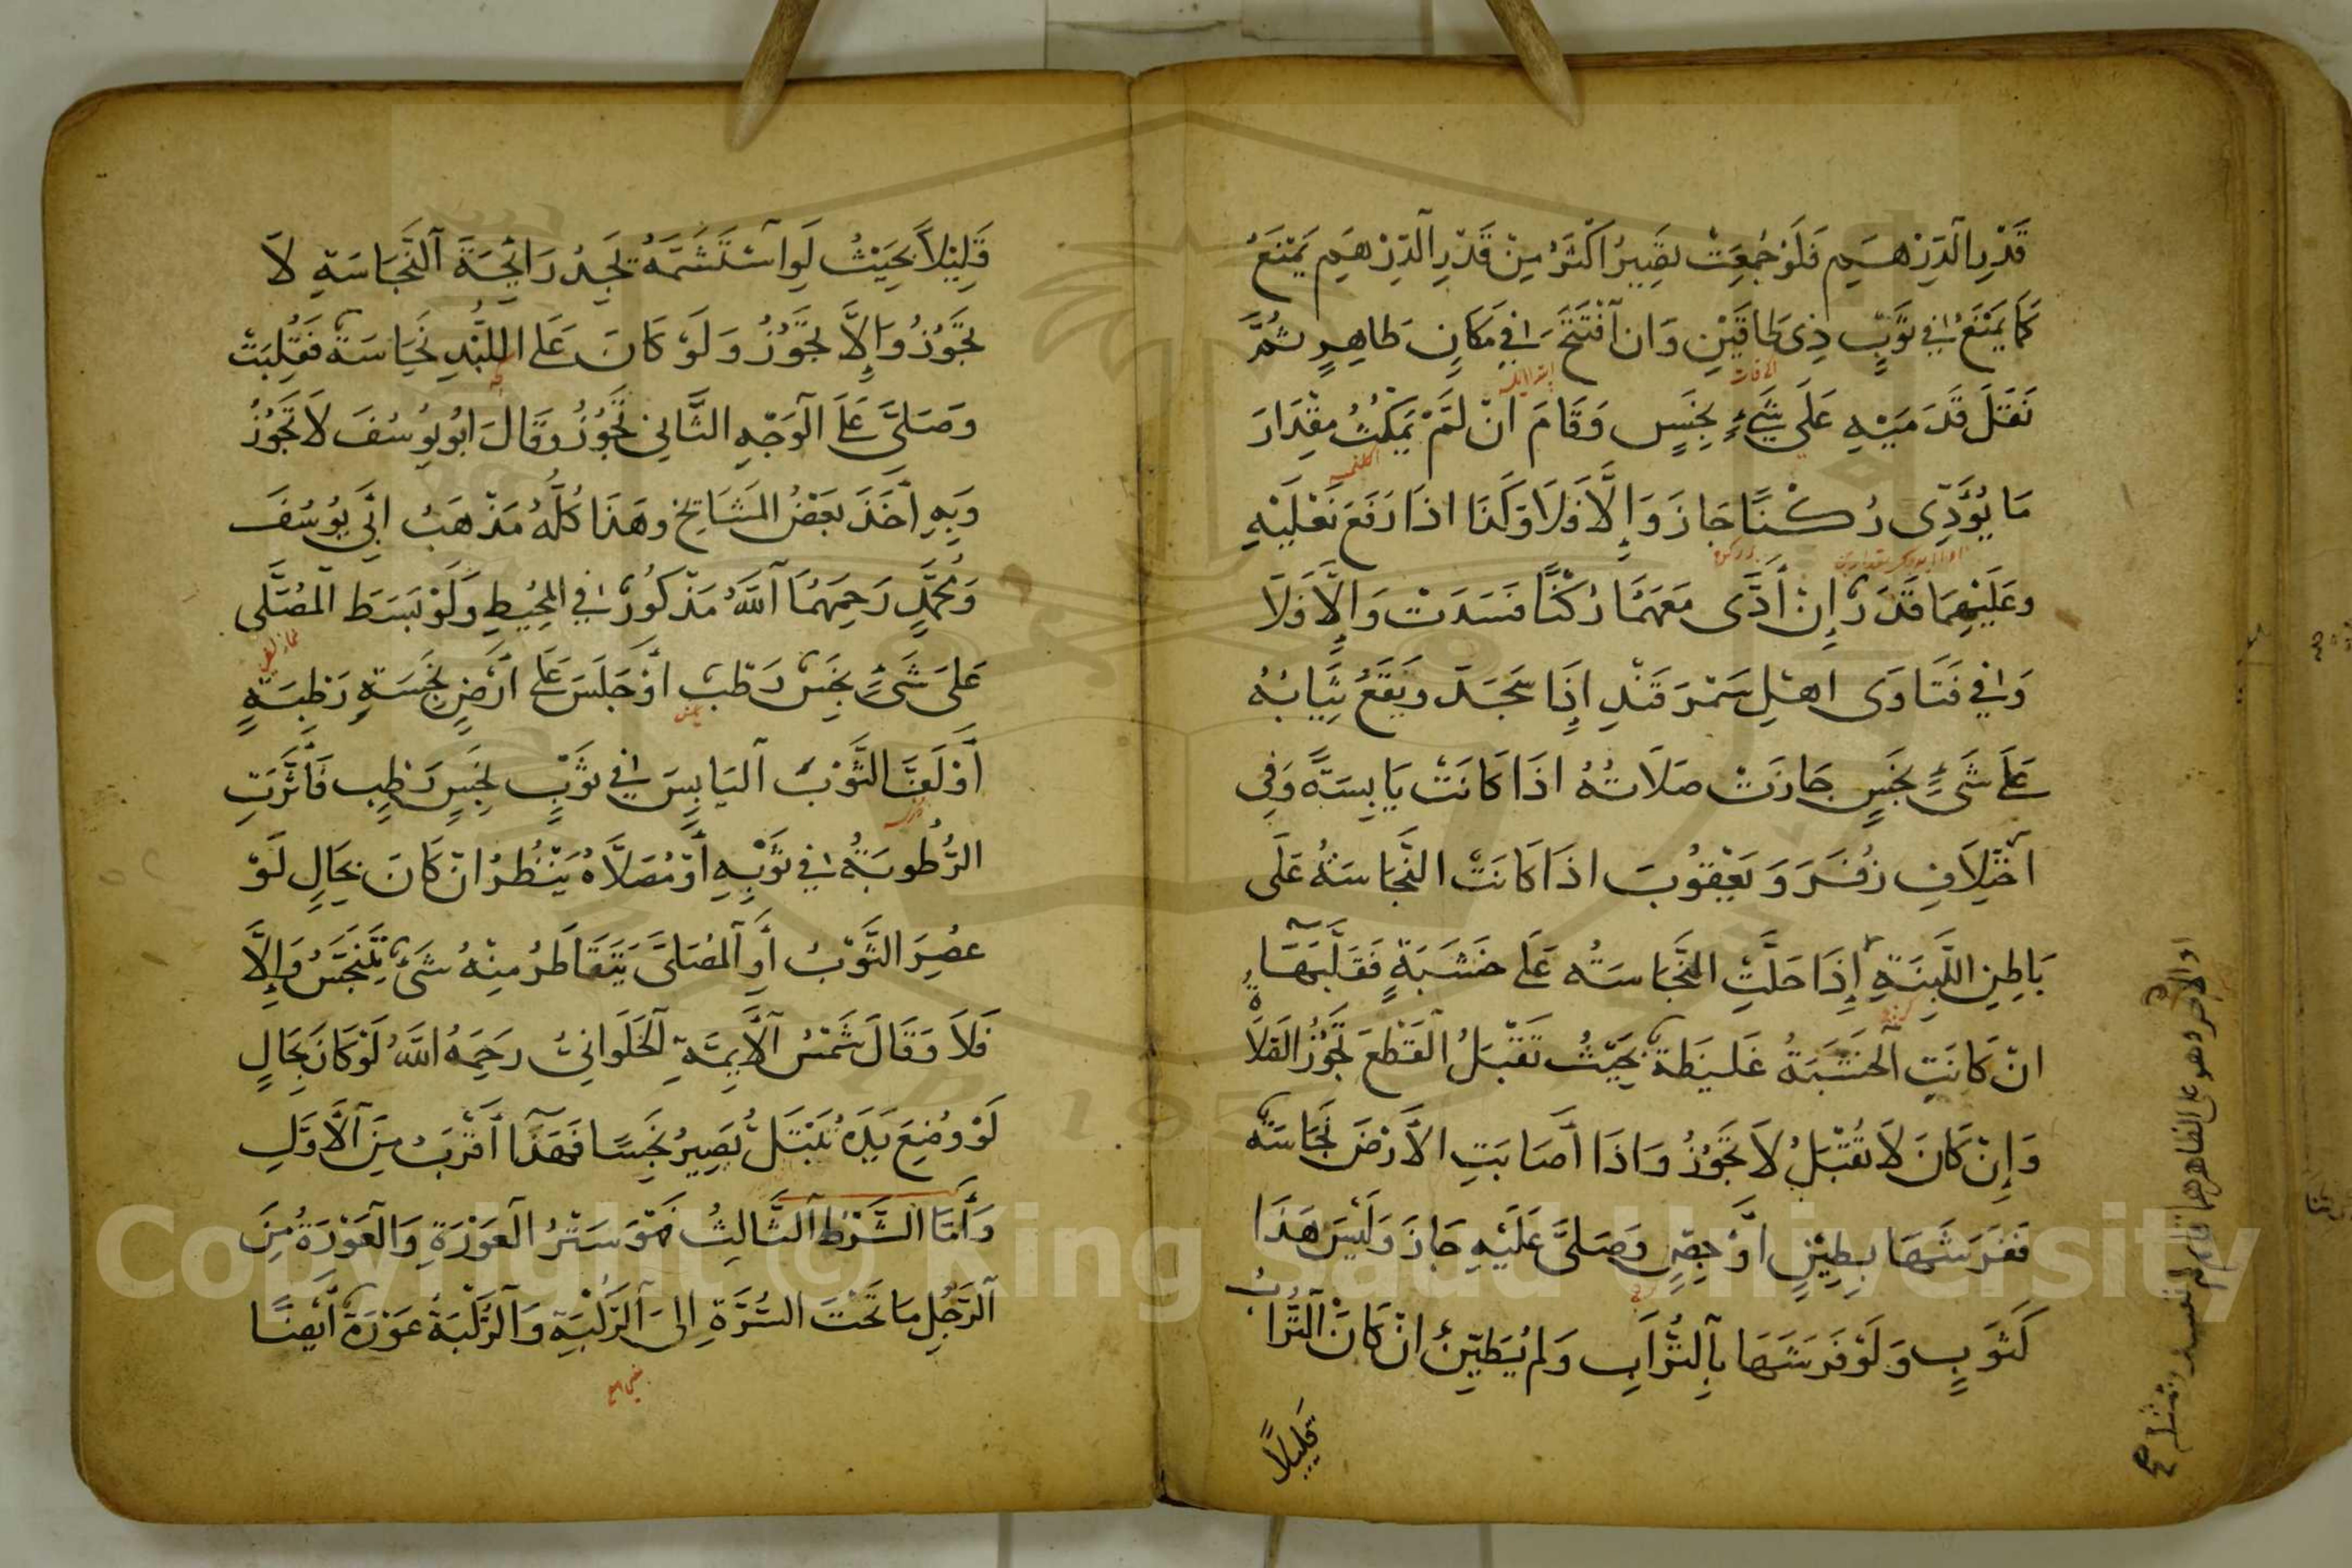 قَدْرِ الدِّرْهَمِ فَلَوْ جُمِعَتْ تصِيرُ اَكْثَرُ مِنْ قَدْرِ الدِّرْهَمِ يَمْنَعُ
كَمَا يَمْنَعُ فِي ثَوْبٍ ذِي طَاقَيْنِ وَان اَفْتَتَحَ فِي مَكَانِ طَاهِرٍ ثُمَّ
نَقَلَ قَدَمَيْهِ عَلَى شَيْءٍ نَجِسٍ وَقَامَ انْ لَمْ يَمْكُثْ مِقْدَارَ
مَا يُؤَدِّي رُكْنًا جَازَ وَإِلَّا فَلَا وَكَذَا اذَا رَفَعَ نَعْلَيْهِ
وعَلَيْهِمَا قَذَرٌ إِنْ أَدَّى مَعَهُمَا رُكْنًا فسَدَتْ وَإِلَّا فَلَا
وَفِي فَتَاوَى اهْلِ سَمَرْقَنْدِ إِذَا سَجَدَ وَيَقَعُ ثِيَابُهُ
عَلَى شَيْءٍ نَجَسٍ جَازَتْ صَلَاتُهُ اذَا كَانَتْ يَابِسَةً وَفِي
اخْتِلَافِ زُفَرَ وَيَعْقُوبَ اذَا كَانَتْ النَّجَاسَةُ عَلَى
بَاطِنِ اللَّبِنَةِ إِذَا حَلَّتِ النَّجَاسَتُه عَلَى خَشَبَةٍ فَقَلَبَهَا
انْ كَانَتِ الْخَشَبَةُ غَلِيظَةً بِحَيْثُ تَقْبَلُ الْقَطْعَ تَجُوزُ الصَّلَاةُ
وَإِنْ كَانَ لَا تَقْبَلُ لَا تَجُوزُ وَاذَا أَصَابَتِ الْأَرْضَ نَجَاسَةٌ
فَفَرَشَهَا بِطِيْنٍ اَوْ جِصٍّ وَصَلَّى عَلَيْهِ جَازَ وَلَيْسَ هَذَا
كَثَوبٍ وَلَوْ فَرَشَهَا بِالتُّرَابِ وَلَمْ يُطَيِّنْ انْ كَانَ التُّرَابُ
قَلِيلًا
قَلِيْلًا بِحَيْثُ لَوِ اسْتَشَمَّهُ تجِدُ رَائِحَةَ النَّجَاسَةِ لَا
تجَوُزُ وَإِلَّا تجَوُزُ وَلَوْ كَانَ عَلَى اللِّبْدِ نَجَاسَةٌ فَقُلِبَتْ
وَصَلَّى عَلَى الْوَجْهِ الثَّانِي تَجُوزُ وَقَالَ ابُو يُوسُفَ لَا تَجُوزُ
وَبِهِ اَخَذَ بَعْضُ الْمَشَايِخِ وهَذَا كُلُّهُ مَذْهَبُ ابِي يُوسُفَ
وَمُحَمَّدٍ رَحِمَهُمَا اللَّهُ مَذْكُورٌ فِي المُحِيْطِ وَلَوْ بَسَطَ الْمُصَلَّى
عَلَى شَيْءٍ نَجِسٍ رَطْبٍ اَوْ جَلَسَ عَلَى اَرْضٍ نَجِسَةٍ رَطِبَةٍ
أَوْ لَفَّ الثَّوْبَ الْيَابِسَ فِي ثَوْبٍ نَجِسٍ رَطِبٍ فَأَثَّرَتِ
الرُّطُوبَةُ فِي ثَوْبِهِ أَوْ مُصَلَّاهُ يَنْظُرُ انْ كَانَ بِحَالٍ لَوْ
عصِرَ الثَّوْبُ أَوِ الْمُصَلَّى يَتَقَاطَرُ مِنْهُ شَيْءٌ يَتَنَجَّسُ وَإِلَّا
فَلَا وَقَالَ شَمْسُ الْأَيِمَّةِ الْحَلَوَانِيُّ رَحِمَهُ اللَّهُ لَوْ كَانَ بِحَالٍ
لَوْ وُضِعَ يَدَهُ تَبْتَلُّ يَصِيرُ نَجِسًا فَهَذَا أَقْرَبُ مِنَ الْأَوَّلِ
وَأَمَّا الشَّرْطُ الثَّالِثُ فَهُوَ سَتْرُ الْعَوْرَةِ وَالْعَوْرَةُ مِنَ
الرَّجُلِ مَا تَحْتَ السُّرَّةِ الَى الرُّكْبَةِ وَالرُّكْبَةُ عَوْرَةٌ أَيْضًا
Copyright © King Saud University